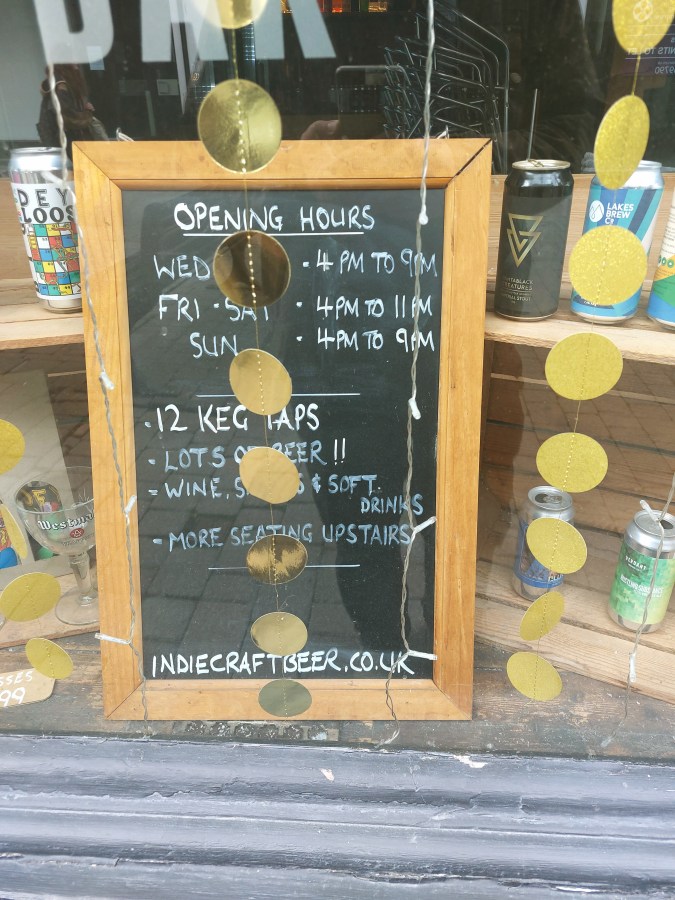 BAR
OPENING HOURS
WED · 4 PM TO 9PM
FRI · SAT · 4PM TO 11PM
SUN · 4PM TO 9PM
· 12 KEG TAPS
- LOTS OF BEER !!
- WINE, & SOFT
DRINKS
- MORE SEATING UPSTAIRS
INDIECRAFTBEER.CO.UK
DEY
LOOS
LAKES
BREW
Co
VERDANT
Westm
99